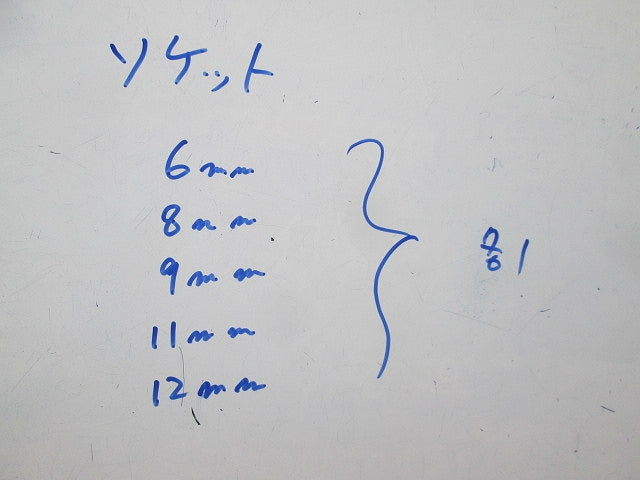 ソケット
6mm
8mm
9mm
11mm
12mm
各1